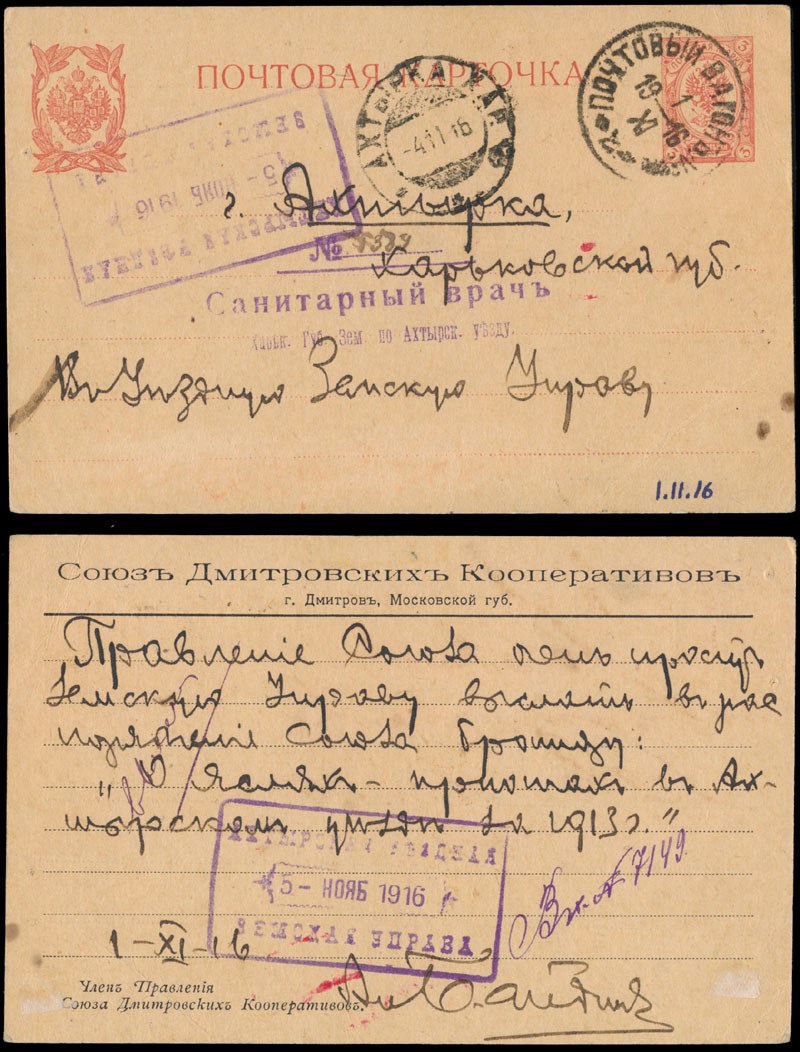 ПОЧТОВАЯ КАРТОЧКА
3
АХТЫРКА ХАР.
-4.11.16
ПОЧТОВЫЙ ВАГОНЪ
19 1 16
XI
АХТЫРСКАЯ УѢЗДНАЯ
5- НОЯБ 1916
ЗЕМСКАЯ
г. Ахтырка,
№
Харьковской губ.
Санитарный врачъ
Харьк. Губ. Зем. по Ахтырск. уѣзду.
Въ Уѣздную Земскую Управу
1.11.16
Союзъ Дмитровскихъ Кооперативовъ
г. Дмитровъ, Московской губ.
Правленіе Союза очень проситъ
Земскую Управу выслать в рас
поряженіе Союза брошюру:
„О ясляхъ-приютахъ въ Ах-
тырскомъ уѣздѣ за 1913 г.”
АХТЫРСКАЯ УѢЗДНАЯ
5- НОЯБ 1916
ЗЕМСКАЯ УПРАВА
Вх. № 7149
1-XI-16
Членъ Правленія
Союза Дмитровскихъ Кооперативовъ.